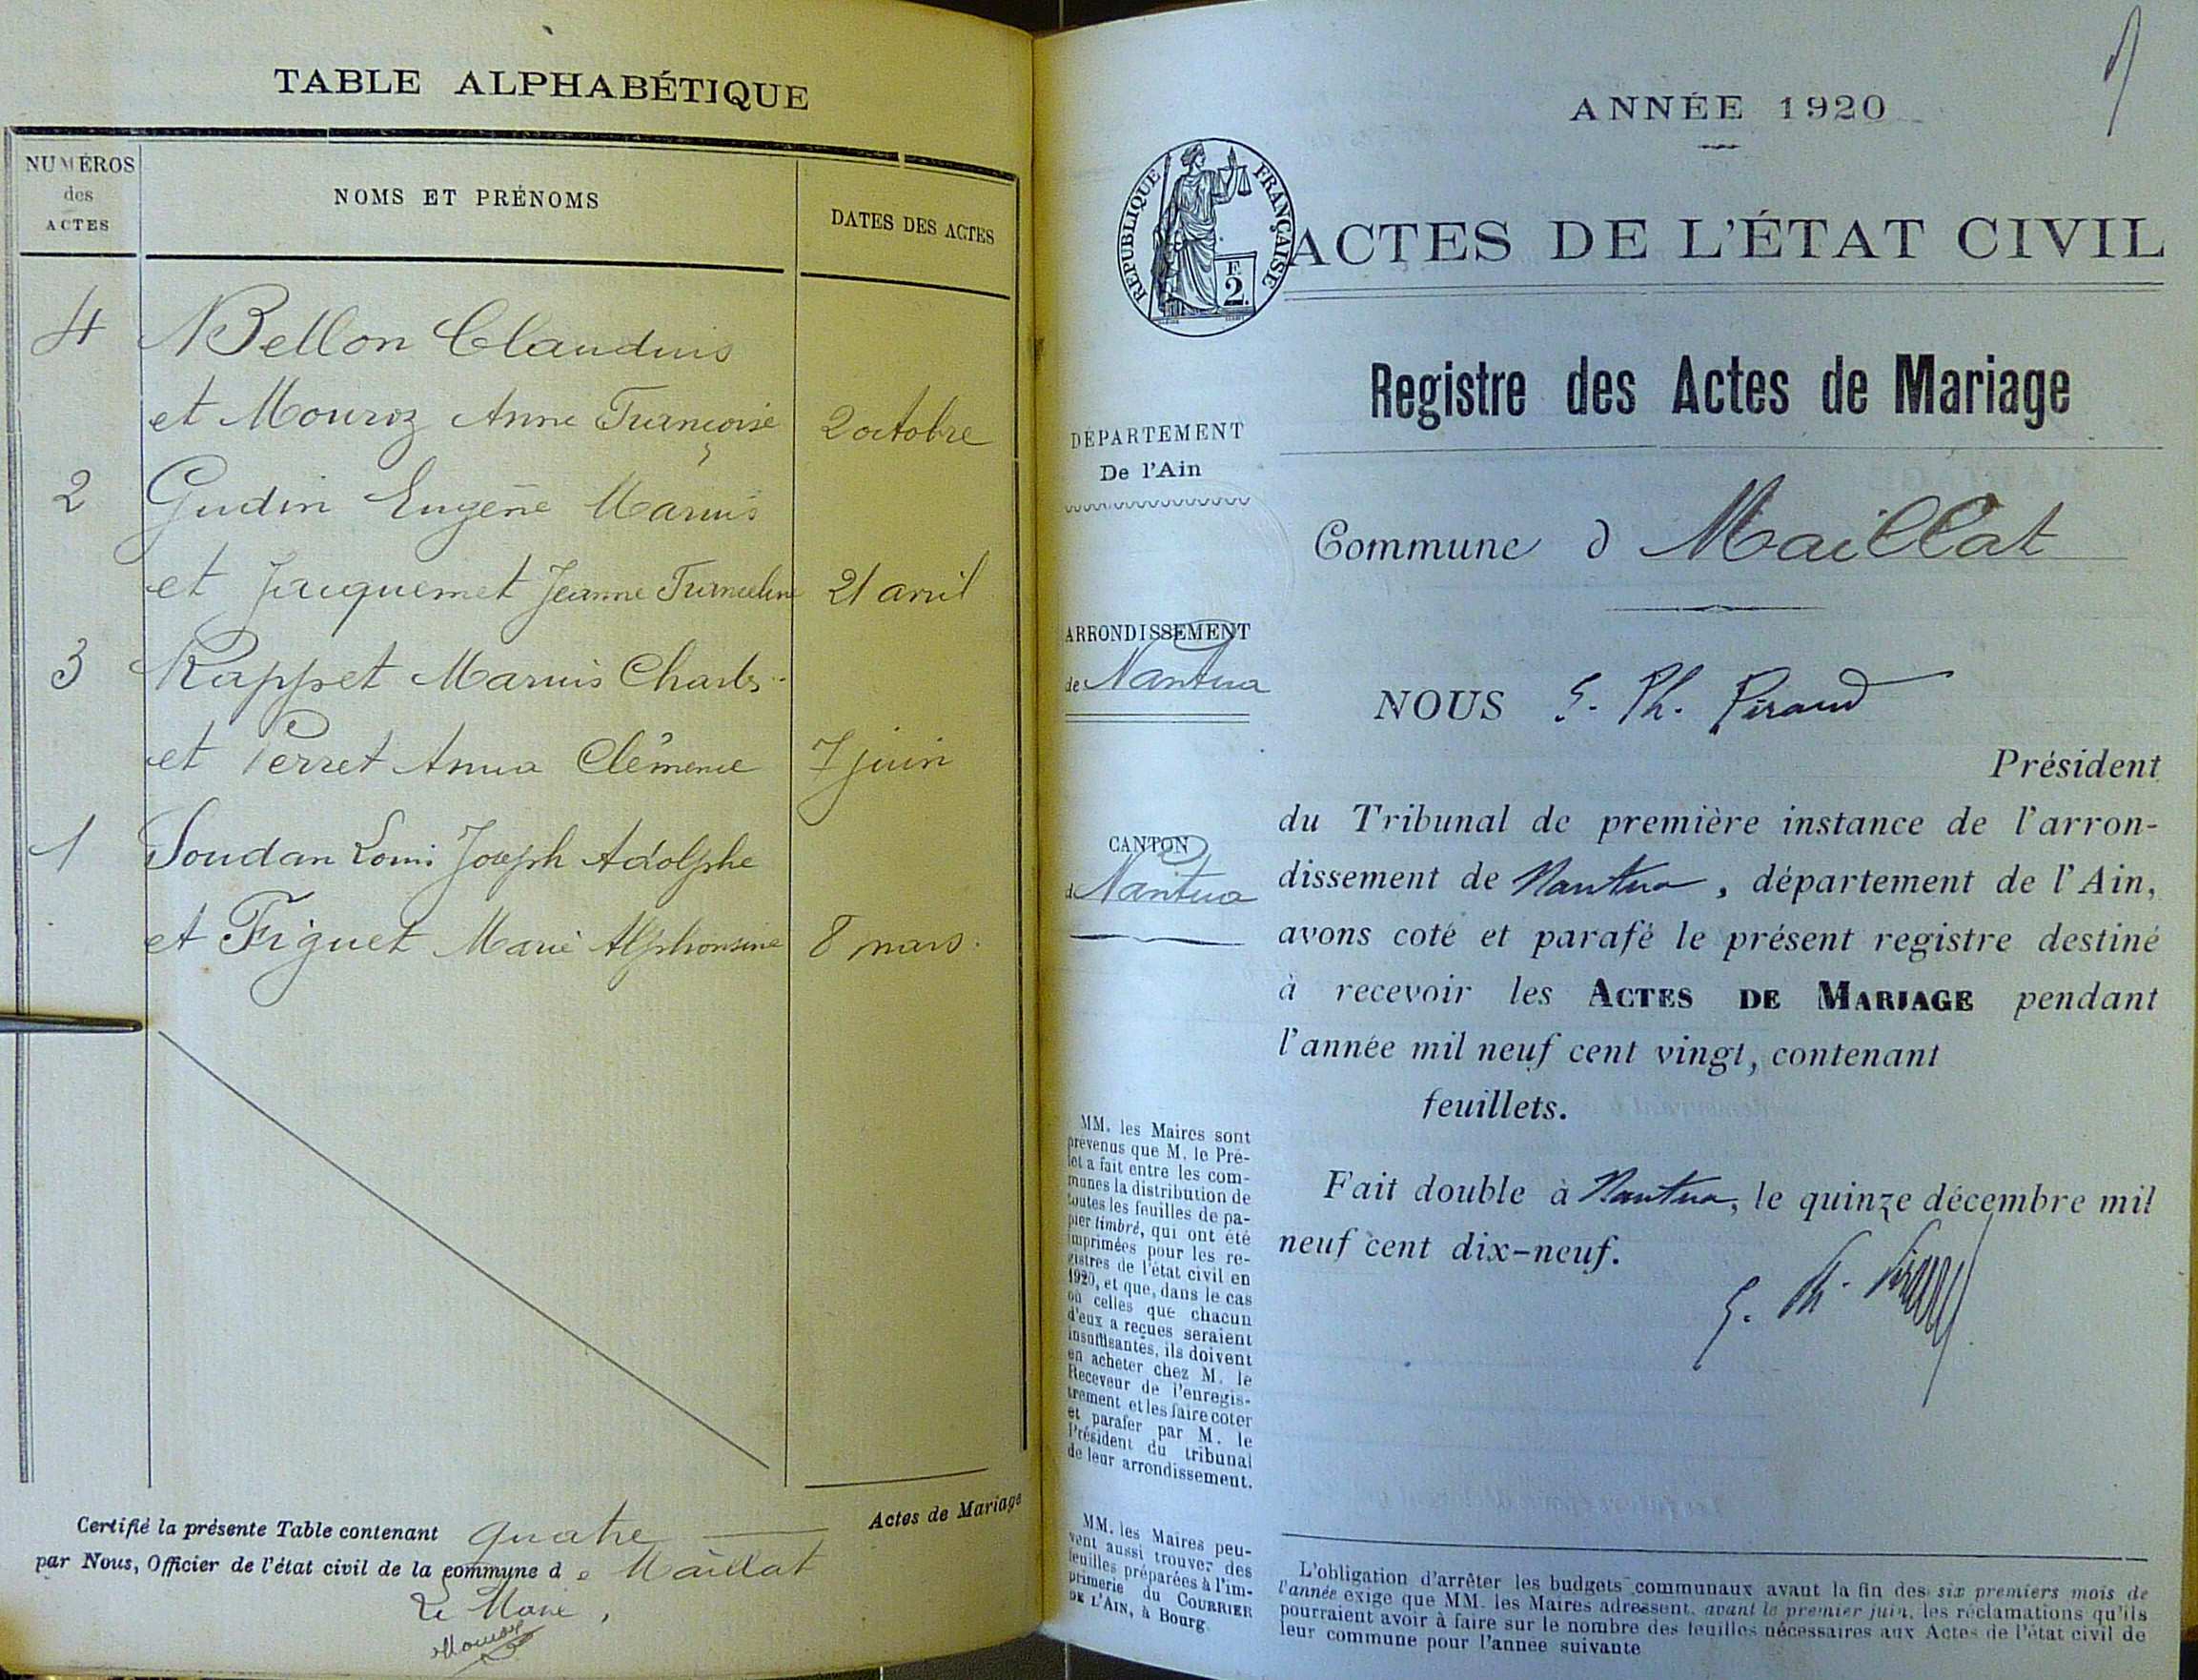 TABLE ALPHABÉTIQUE
NUMÉROS
des
ACTES
NOMS ET PRÉNOMS
DATES DES ACTES
4 Bellon Claudius
et Mouroz Anne Françoise 2 octobre
2 Gudin Eugène Marius
et Jacquemet Jeanne Franceline 21 avril
3 Rappet Marius Charles
et Perret Anna Clémence 7 juin
1 Soudan Louis Joseph Adolphe
et Figuet Marie Alphonsine 8 mars.
Certifié la présente Table contenant quatre Actes de Mariage
par Nous, Officier de l'état civil de la commune d e Maillat
Le Maire,
ANNÉE 1920
RÉPUBLIQUE FRANÇAISE
F.
2.
ACTES DE L'ÉTAT CIVIL
Registre des Actes de Mariage
DÉPARTEMENT
De l'Ain
Commune d Maillat
ARRONDISSEMENT
de Nantua
CANTON
de Nantua
NOUS G. Ph. Piraud
Président
du Tribunal de première instance de l'arron-
dissement de Nantua, département de l'Ain,
avons coté et parafé le présent registre destiné
à recevoir les ACTES DE MARIAGE pendant
l'année mil neuf cent vingt, contenant
feuillets.
Fait double à Nantua, le quinze décembre mil
neuf cent dix-neuf.
G. Ph. Piraud
MM. les Maires sont
prévenus que M. le Pré-
fet a fait entre les com-
munes la distribution de
toutes les feuilles de pa-
pier timbré, qui ont été
imprimées pour les re-
gistres de l'état civil en
1920, et que, dans le cas
où celles que chacun
d'eux a reçues seraient
insuffisantes, ils doivent
en acheter chez M. le
Receveur de l'enregis-
trement et les faire coter
et parafer par M. le
Président du tribunal
de leur arrondissement.
MM. les Maires peu-
vent aussi trouver des
feuilles préparées à l'im-
primerie du COURRIER
DE L'AIN, à Bourg
L'obligation d'arrêter les budgets communaux avant la fin des six premiers mois de
l'année exige que MM. les Maires adressent, avant le premier juin, les réclamations qu'ils
pourraient avoir à faire sur le nombre des feuilles nécessaires aux Actes de l'état civil de
leur commune pour l'année suivante